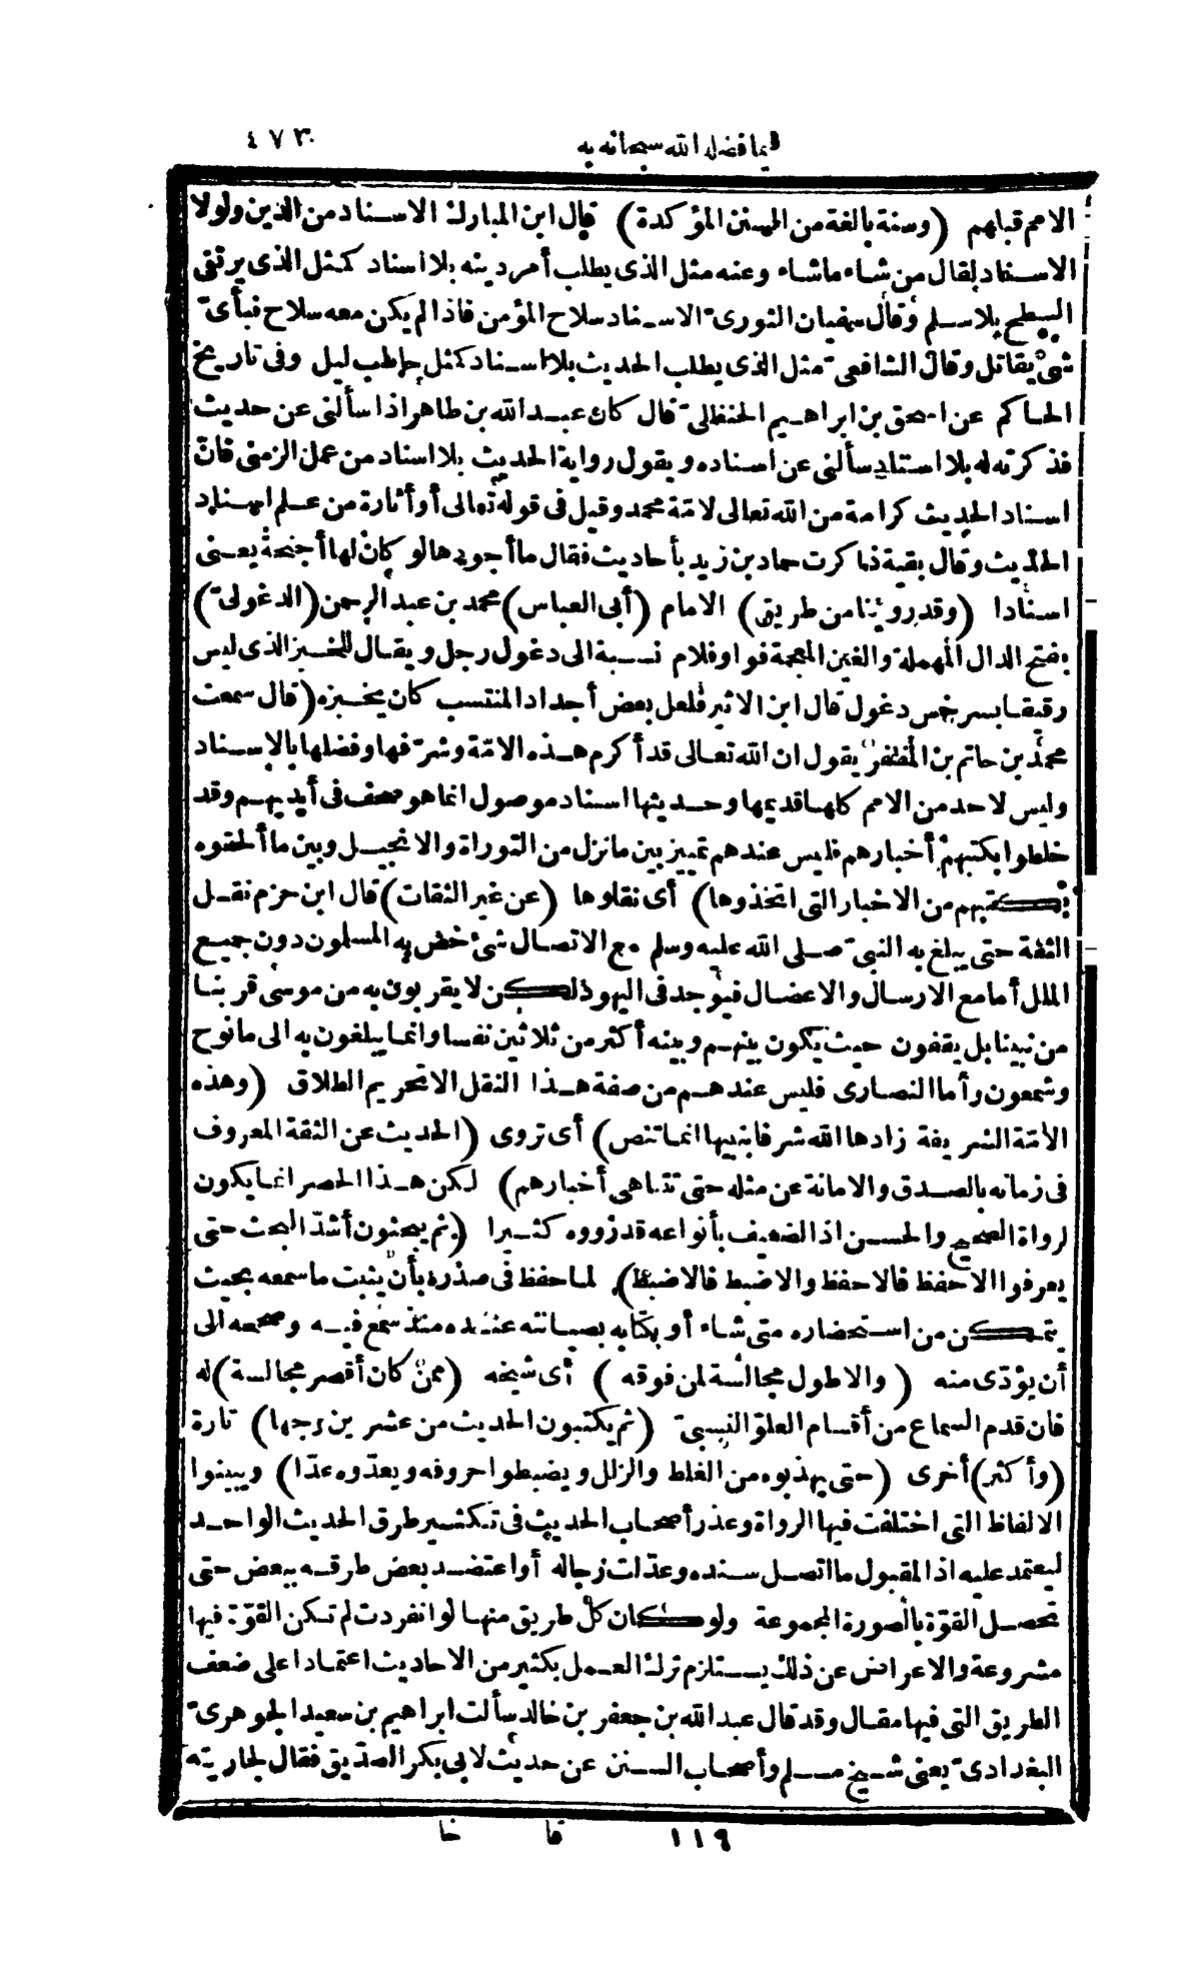 فيما فضله الله سبحانه به ٤٧٣
الامم قبلهم (وسنة بالغة من السنن المؤكدة) قال ابن المبارك الاسناد من الدين ولولا
الاسناد لقال من شاء ما شاء وعنه مثل الذى يطلب أمر دينه بلا اسناد كمثل الذى يرتقى
السطح بلا سلم وقال سفيان الثورى الاسناد سلاح المؤمن فاذا لم يكن معه سلاح فبأى
شئ يقاتل وقال الشافعى مثل الذى يطلب الحديث بلا اسناد كمثل حاطب ليل وفى تاريخ
الحاكم عن اسحق بن ابراهيم الحنظلى قال كان عبد الله بن طاهر اذا سألنى عن حديث
فذكرته له بلا اسناد سألنى عن اسناده ويقول رواية الحديث بلا اسناد من عمل الزمنى فان
اسناد الحديث كرامة من الله تعالى لامة محمد وقيل فى قوله تعالى أو أثارة من علم اسناد
الحديث وقال بقية ذاكرت حماد بن زيد بأحاديث فقال ما أجودها لو كان لها أجنحة يعنى
اسنادا (وقد روينا من طريق) الامام (أبى العباس) محمد بن عبد الرحمن (الدغولى)
بفتح الدال المهملة والغين المعجمة فواو فلام نسبة الى دغول رجل ويقال للخبز الذى ليس
رقيقا بسرخس دغول قال ابن الاثير فلعل بعض أجداد المنتسب كان يخبزه (قال سمعت
محمد بن حاتم بن المظفر يقول ان الله تعالى قد أكرم هذه الامة وشرفها وفضلها بالاسناد
وليس لاحد من الامم كلها قديمها وحديثها اسناد موصول انما هو صحف فى أيديهم وقد
خلطوا بكتبهم أخبارهم فليس عندهم تمييز بين ما نزل من التوراة والانجيل وبين ما ألحقوه
بكتبهم من الاخبار التى اتخذوها) أى نقلوها (عن غير الثقات) قال ابن حزم نقل
الثقة حتى يبلغ به النبى صلى الله عليه وسلم مع الاتصال شئ خص به المسلمون دون جميع
الملل أما مع الارسال والاعضال فيوجد فى اليهود لكن لا يقربون به من موسى قربنا
من نبينا بل يقفون حيث يكون بينهم وبينه أكثر من ثلاثين نفسا وانما يبلغون به الى مانوح
وشمعون وأما النصارى فليس عندهم من صفة هذا النقل الا تحريم الطلاق (وهذه
الامة الشريفة زادها الله شرفا بنبيها انما تنص) أى تروى (الحديث عن الثقة المعروف
فى زمانه بالصدق والامانة عن مثله حتى تتناهى أخبارهم) لكن هذا الحصر انما يكون
لرواة الصحيح والحسن اذ الضعيف بأنواعه قد رووه كثيرا (ثم يبحثون أشد البحث حتى
يعرفوا الاحفظ فالاحفظ والاضبط فالاضبط) لما حفظ فى صدره بأن يثبت ما سمعه بحيث
يتمكن من استحضاره متى شاء أو بكتابه بصيانته عنده منذ سمع فيه وصححه الى
أن يؤدى منه (والاطول مجالسة لمن فوقه) أى شيخه (ممن كان أقصر مجالسة) له
فان قدم السماع من أقسام العلو النسبى (ثم يكتبون الحديث من عشرين وجها) تارة
(وأكثر) أخرى (حتى يهذبوه من الغلط والزلل ويضبطوا حروفه ويعدوه عدا) ويبينوا
الالفاظ التى اختلفت فيها الرواة وعذر أصحاب الحديث فى تكثير طرق الحديث الواحد
ليعتمد عليه اذ المقبول ما اتصل سنده وعدلت رجاله أو اعتضد بعض طرقه ببعض حتى
تحصل القوة بالصورة المجموعة ولو كان كل طريق منها لو انفردت لم تكن القوة فيها
مشروعة والاعراض عن ذلك يستلزم ترك العمل بكثير من الاحاديث اعتمادا على ضعف
الطريق التى فيها مقال وقد قال عبد الله بن جعفر بن خالد سألت ابراهيم بن سعيد الجوهرى
البغدادى يعنى شيخ مسلم وأصحاب السنن عن حديث لابى بكر الصديق فقال لجاريته
١١٩ قا خا